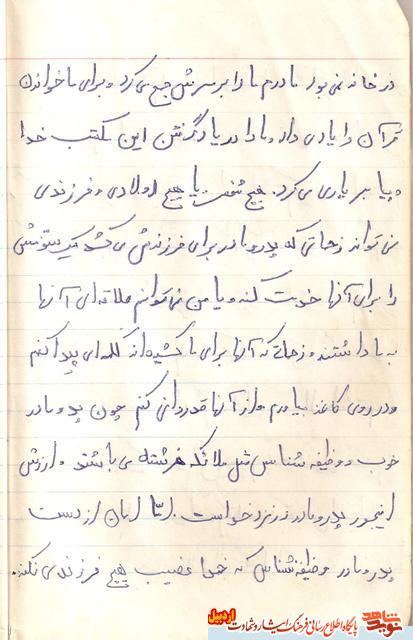 در خانه نمی بود مادرم ما را بر سرش جمع می کرد و برای ما خواندن
قرآن را یاری داد و ما را در یاد گرفتن این کتب خدا
و پیامبر یاری می کرد. هیچ شخصی یا هیچ اولادی و فرزندی
نمی تواند زحماتی که پدر و مادر برای فرزندش می کشد یک ستونشی
را برای آنها خدمت کند و یا من نمی توانم علاقه ای آنها
به ما داشتند و زحماتی که آنها برای ما کشیده اند کلمه ای پیدا کنم
و در روی کاغذ بیاورم و از آنها قدردانی کنم چون پدر و مادر
خوب و وظیفه شناس مثل ملائکه فرشته می باشند و ارزش
اینجور پدر و مادر نزد خداست. امان از دست
پدر و مادر وظیفه شناس که خدا نصیب هیچ فرزندی نکند.
نوید شاهد
پایگاه اطلاع رسانی فرهنگ ایثار و شهادت
اردبیل